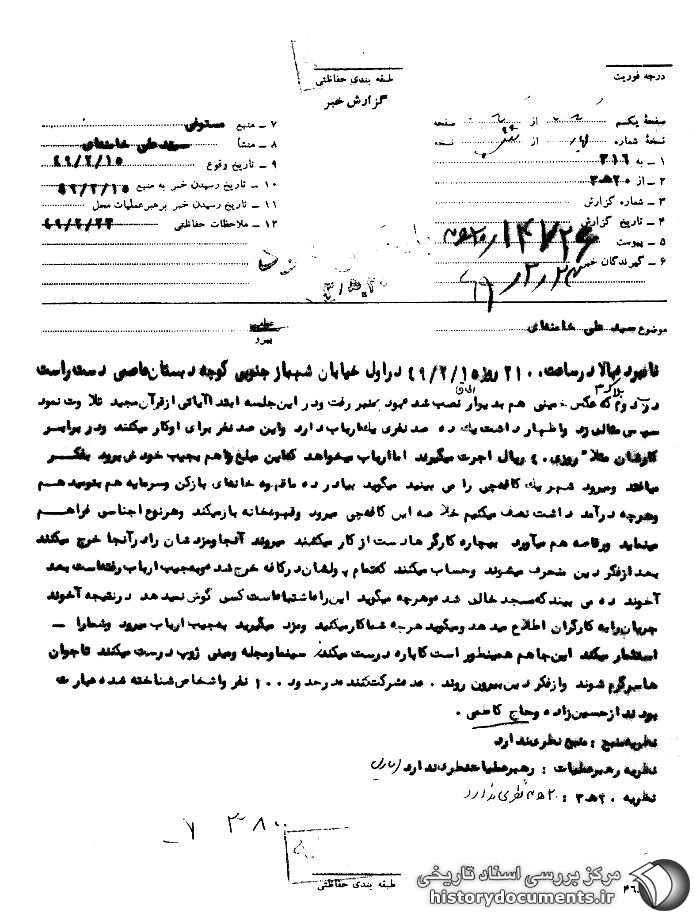 درجه فوریت
طبقه بندی حفاظتی
گزارش خبر
صفحهٔ یکم از صفحه
نسخهٔ شماره از نسخه
۱ ـ به ۳۱۶
۲ ـ از ۲۰ هـ ۳
۳ ـ شماره گزارش
۴ ـ تاریخ گزارش
۵ ـ پیوست
۶ ـ گیرندگان خبر
۷ ـ منبع مستوفی
۸ ـ منشأ سیدعلی خامنه‌ای
۹ ـ تاریخ وقوع ۴۹/۲/۱۵
۱۰ ـ تاریخ رسیدن خبر به منبع ۴۹/۲/۱۵
۱۱ ـ تاریخ رسیدن خبر برهبر عملیات محل
۱۲ ـ ملاحظات حفاظتی ۴۹/۲/۲۳
موضوع سید علی خامنه‌ای
پیرو
نامبرده بالا در ساعت ۲۱۰۰ روز ۴۹/۲/۱۵ در اول خیابان شهباز جنوبی کوچه دبستان دست راست
پلاک ۳
درب دوم که عکس خمینی هم به دیوار نصب شده بود منبر رفت و در این جلسه ابتدا آیاتی از قرآن مجید تلاوت نمود
سپس مثالی زد و اظهار داشت یک ده صد نفری یک ارباب دارد و این صد نفر برای او کار میکنند و در برابر
کارشان مثلا روزی ۴۰ ریال اجرت میگیرند اما ارباب میخواهد که این مبلغ را هم بجیب خودش برود بفکر
میافتد و میرود شهر یک کافه‌چی را می بیند میگوید بیا در ده ما قهوه خانه‌ای باز کن و سرمایه هم بتو میدهم
و هرچه درآمد داشت نصف میکنیم خلاصه این کافه‌چی میرود و قهوه‌خانه باز میکند و هر نوع اجناسی فراهم
مینماید و رقاصه هم می‌آورد بیچاره کارگرها دست از کار میکشند میروند آنجا و مزدشان را در آنجا خرج میکنند
بعد از فکر دین منحرف میشوند و حساب میکنند که تمام پولشان در کافه خرج شده و بجیب ارباب رفته‌است بعد
آخوند ده می بیند که مسجد خالی شده و هرچه میگوید این راه اشتباه است کسی گوش نمیدهد در نتیجه آخوند
جریان را به کارگران اطلاع میدهد و میگوید هرچه شما کار میکنید و مزد میگیرید به جیب ارباب میرود و شما را ـ
استثمار میکند این جا هم همینطور است کاباره درست میکنند سینما و مجله و مینی ژوپ درست میکنند تا جوان
ها سرگرم شوند و از فکر دین بیرون روند . عده شرکت کننده در حدود ۱۰۰ نفر و اشخاص شناخته شده عبارت
بودند از حسین‌زاده و حاج کاظمی .
نظریه منبع : منبع نظری ندارد
نظریه رهبر عملیات : رهبر عملیات نظری ندارد
نظریه ۲۰ هـ ۳ : ۲۰ هـ ۳ نظری ندارد
۷ ۳۸۰
طبقه بندی حفاظتی
مرکز بررسی اسناد تاریخی
historydocuments.ir